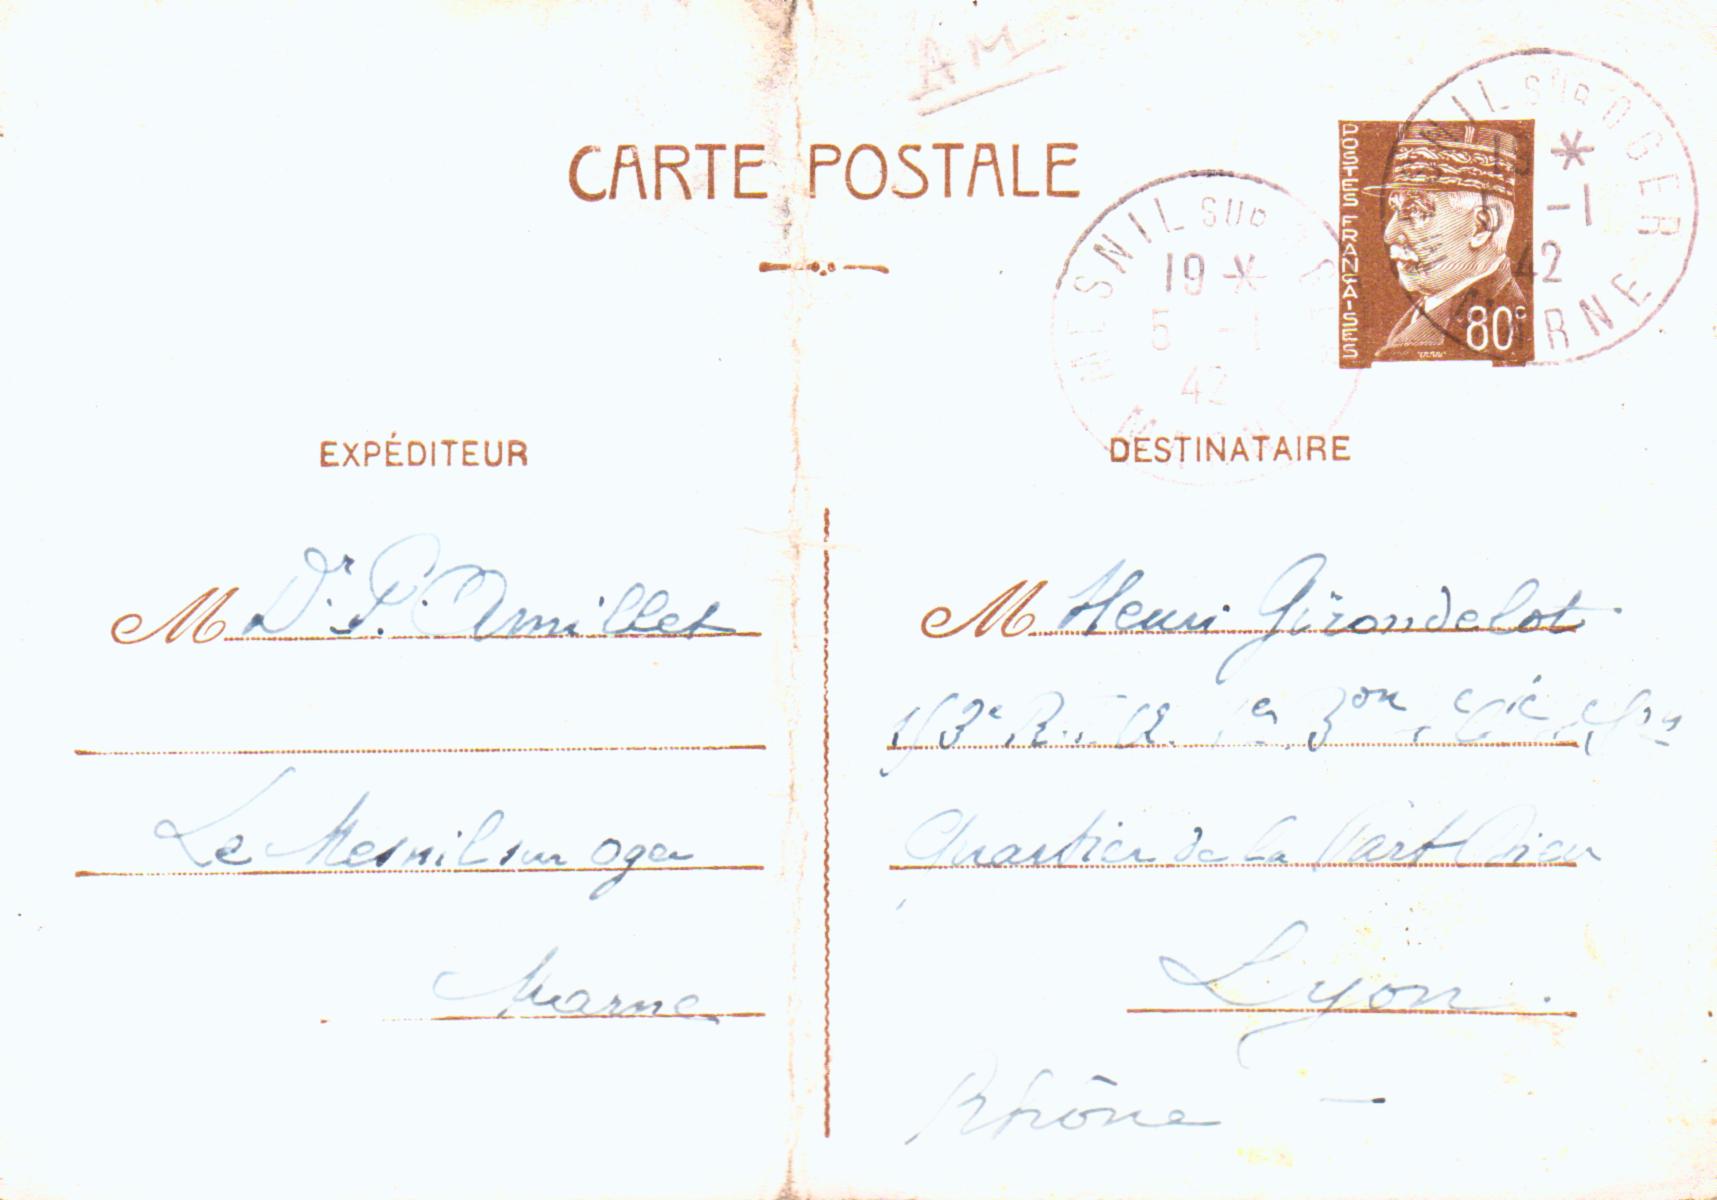 AM
CARTE POSTALE
POSTES FRANÇAISES
80c
MESNIL SUR OGER
19 *
5 -1
42
MARNE
MESNIL SUR
19 *
5 -1
42
MARNE
EXPÉDITEUR
M Dr. P. Amillet
Le Mesnil sur Oger
Marne
DESTINATAIRE
M Henri Girondelot
153e 1er Bon
Quartier de la Part Dieu
Lyon.
Rhône —